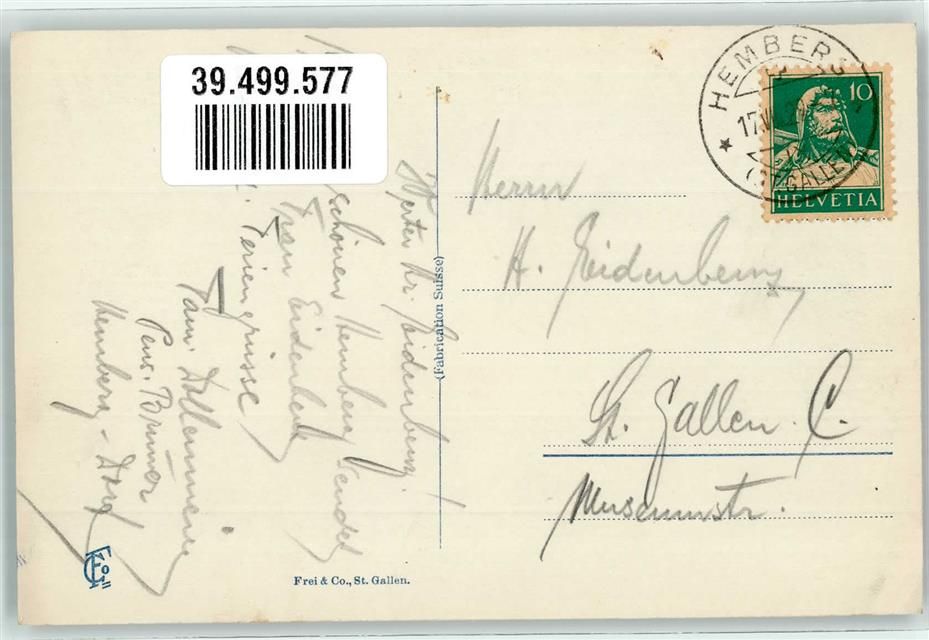 39.499.577
HEMBERG
17.V
(ST. GALLEN)
10
HELVETIA
Herrn
H. Eidenbenz
St. Gallen C.
Museumstr.
Werter Hr. Eidenbenz!
schönen Hemberg sendet
Frau Eidenbenz
Feriengrüsse
Fam.
Pens. Brunner
Hemberg-Dorf
(Fabrication Suisse)
Frei & Co., St. Gallen.